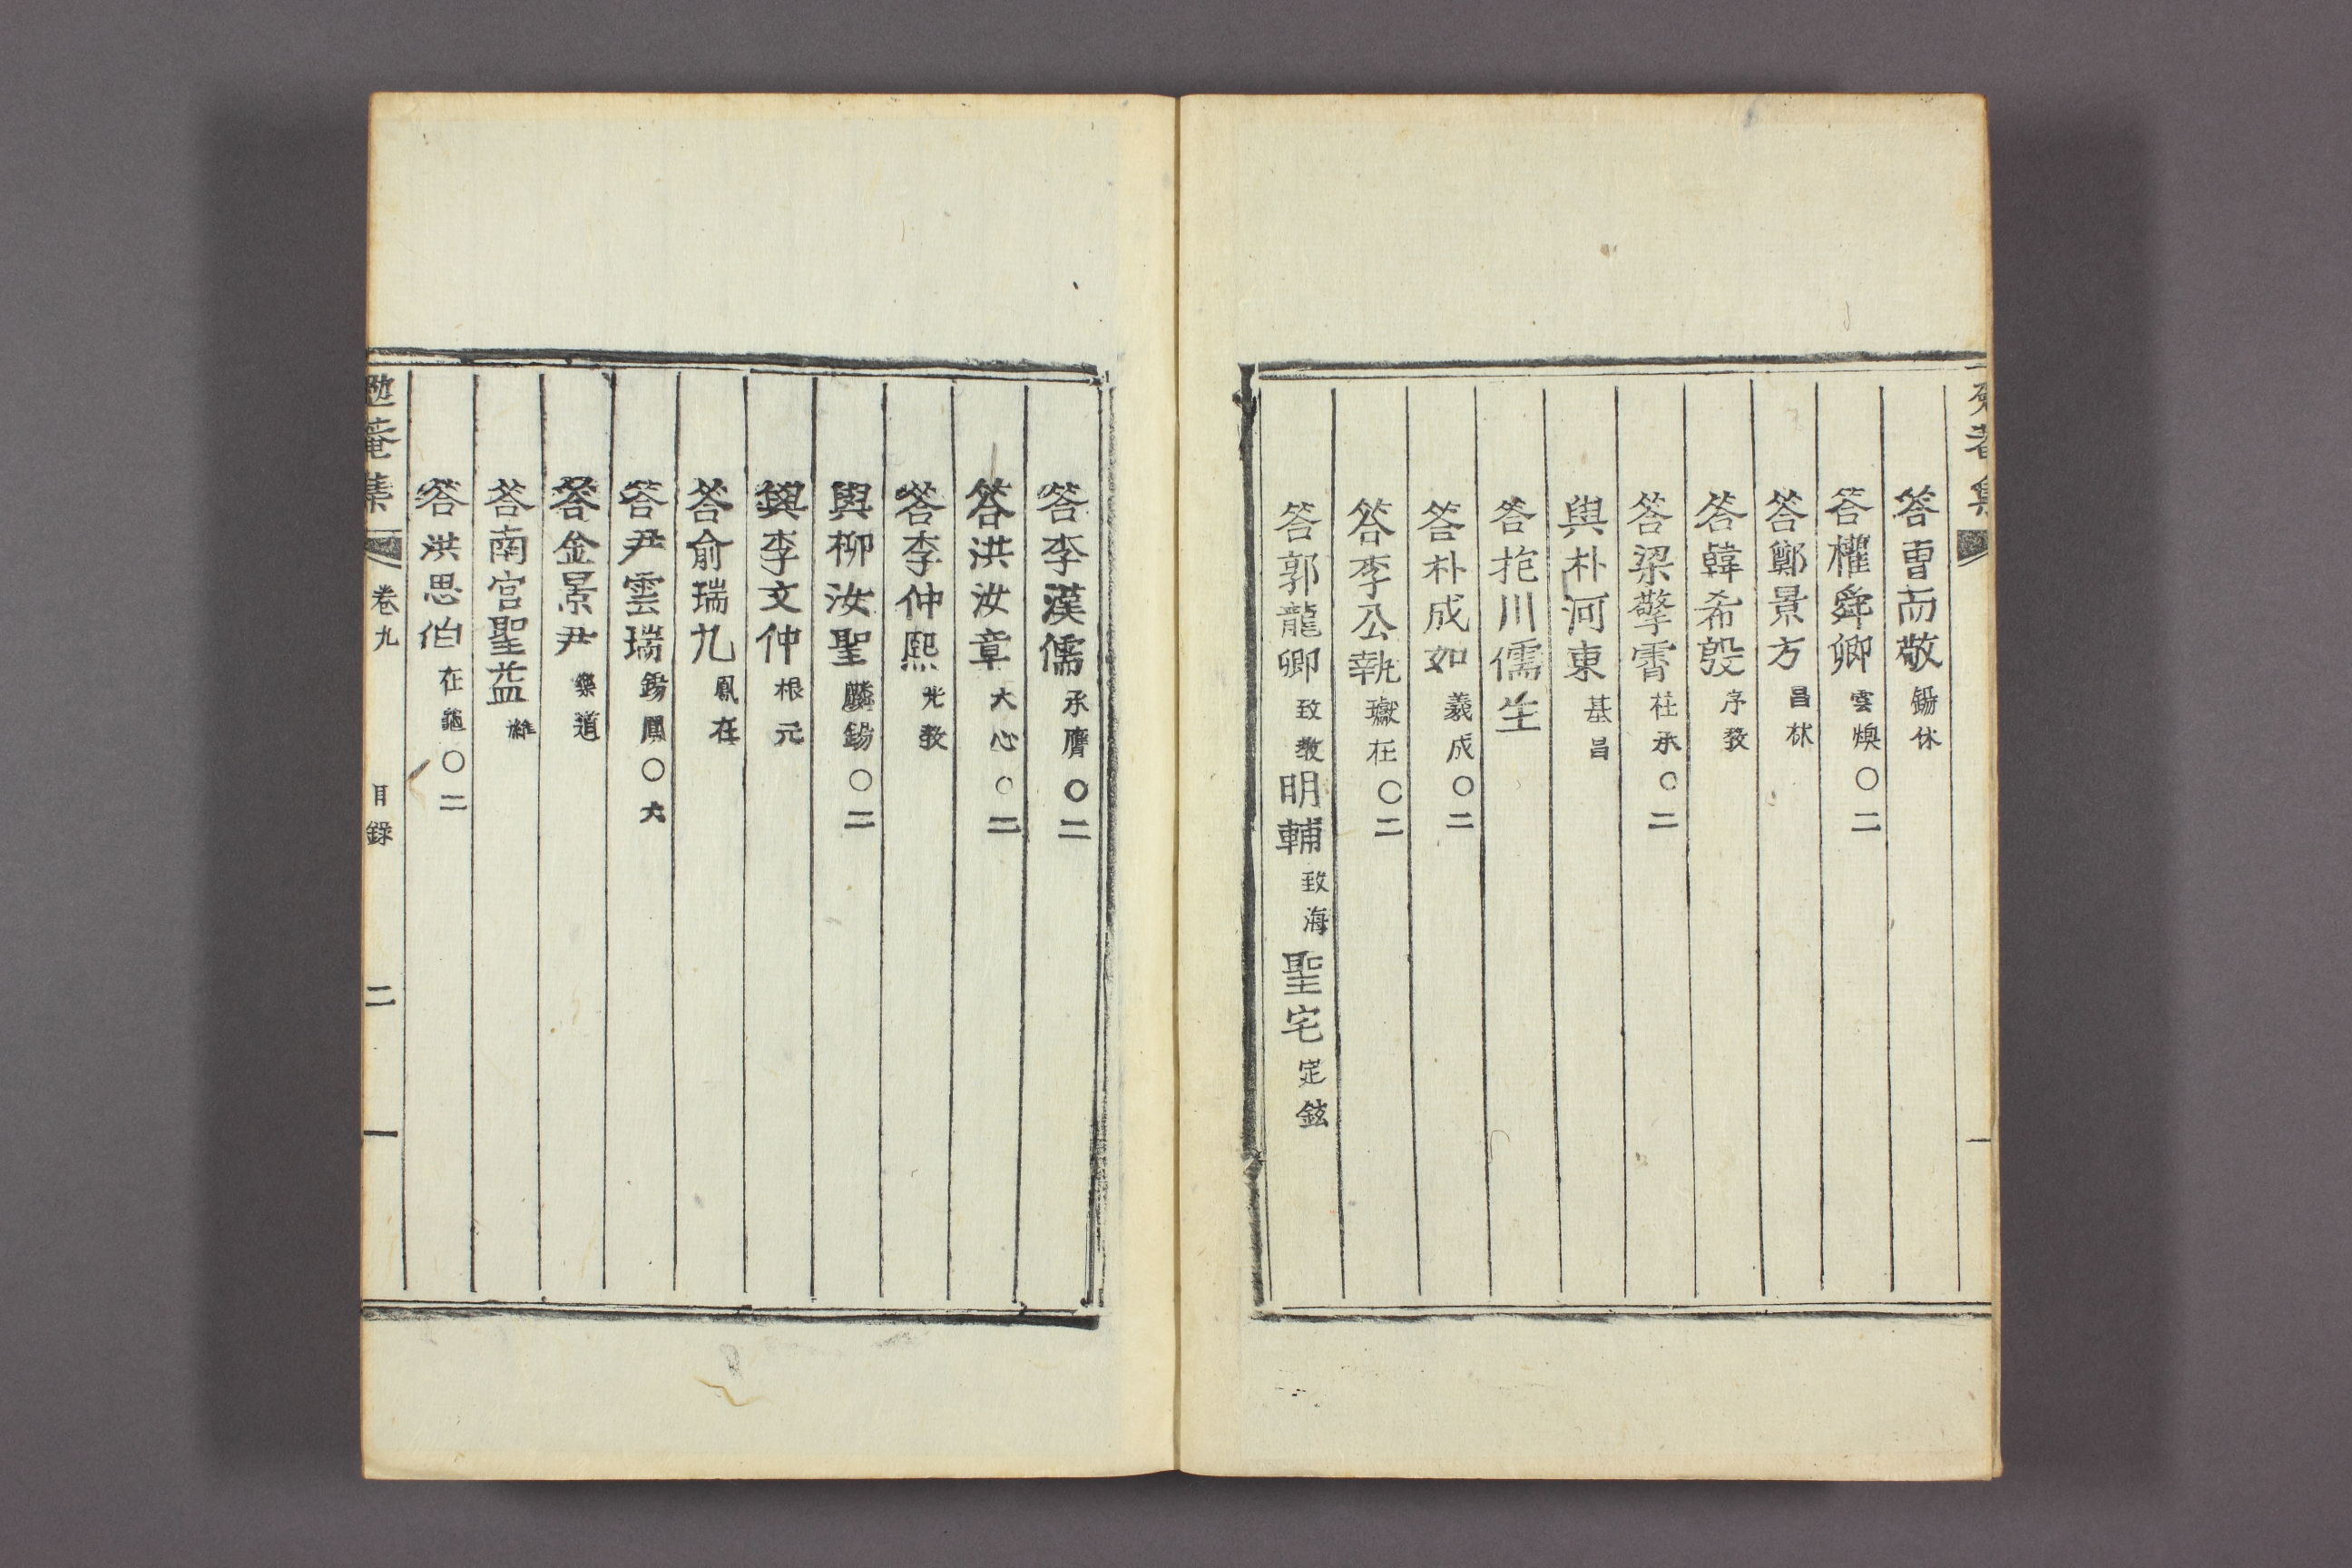 答曺而敬 錫休
答權舜卿 雲煥○二
答鄭景方 昌林
答韓希殷 序敎
答梁擎霄 柱承○二
與朴河東 基昌
答抱川儒生
答朴成如 羲成○二
答李公執 瓛在○二
答郭龍卿 致敎 明輔 致海 聖宅 定鉉
答李漢儒 承膺○二
答洪汝章 大心○二
答李仲熙 光敎
與柳汝聖 麟錫○二
與李文仲 根元
答俞瑞九 鳳在
答尹雲瑞 錫鳳○六
答金景尹 樂道
答南宮聖益
答洪思伯 在龜○二
勉菴集 卷九 目錄 二 一